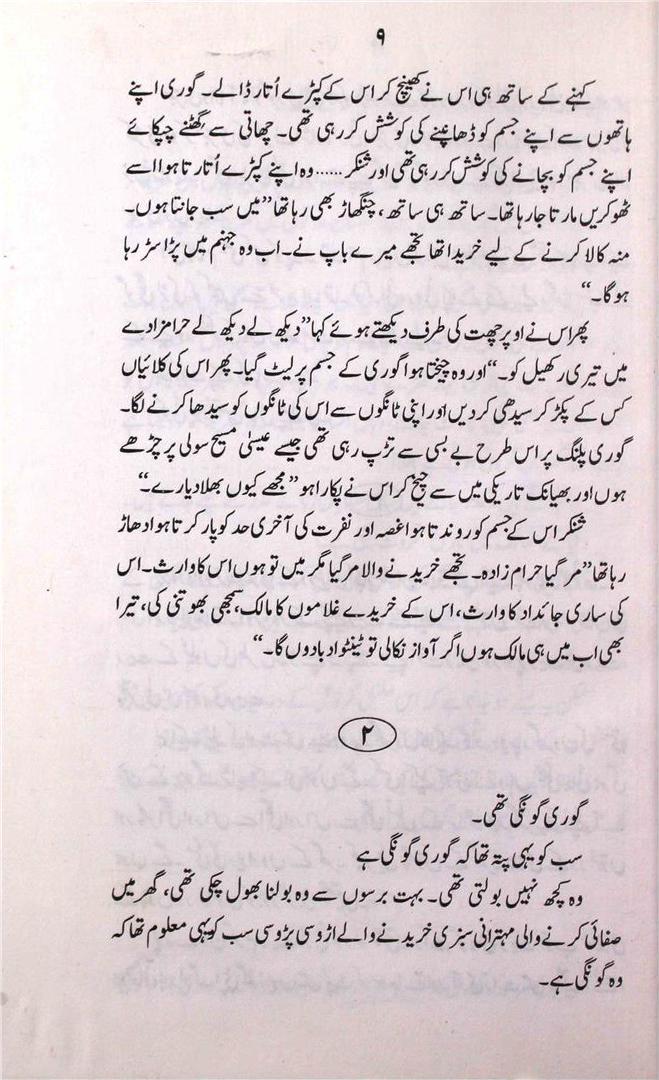 ۹
کہنے کے ساتھ ہی اس نے کھینچ کر اس کے کپڑے اُتار ڈالے۔ گوری اپنے
ہاتھوں سے اپنے جسم کو ڈھانپنے کی کوشش کر رہی تھی۔ چھاتی سے گھٹنے چپکائے
اپنے جسم کو بچانے کی کوشش کر رہی تھی اور شنکر...... وہ اپنے کپڑے اُتارتا ہوا اسے
ٹھوکریں مارتا جارہا تھا۔ ساتھ ہی ساتھ، چنگھاڑ بھی رہا تھا ”میں سب جانتا ہوں۔
منہ کالا کرنے کے لیے خریدا تھا تجھے میرے باپ نے۔ اب وہ جہنم میں پڑا سڑ رہا
ہوگا۔“
پھر اس نے اوپر چھت کی طرف دیکھتے ہوئے کہا ”دیکھ لے دیکھ لے حرامزادے
میں تیری رکھیل کو۔“ اور وہ چیختا ہوا گوری کے جسم پر لیٹ گیا۔ پھر اس کی کلائیاں
کس کے پکڑ کر سیدھی کردیں اور اپنی ٹانگوں سے اس کی ٹانگوں کو سیدھا کرنے لگا۔
گوری پلنگ پر اس طرح بے بسی سے تڑپ رہی تھی جیسے عیسیٰ مسیح سولی پر چڑھے
ہوں اور بھیانک تاریکی میں سے چیخ کر اس نے پکارا ہو ”مجھے کیوں بھلا دیا رے۔“
شنکر اس کے جسم کو روندتا ہوا غصہ اور نفرت کی آخری حد کو پار کرتا ہوا دھاڑ
رہا تھا ”مر گیا حرام زادہ۔ تجھے خریدنے والا مر گیا مگر میں تو ہوں اس کا وارث۔ اس
کی ساری جائداد کا وارث، اس کے خریدے غلاموں کا مالک، سمجھی بھوتنی کی، تیرا
بھی اب میں ہی مالک ہوں اگر آواز نکالی تو ٹینٹوا دبا دوں گا۔“
۲
گوری گونگی تھی۔
سب کو یہی پتہ تھا کہ گوری گونگی ہے
وہ کچھ نہیں بولتی تھی۔ بہت برسوں سے وہ بولنا بھول چکی تھی، گھر میں
صفائی کرنے والی مہترانی سبزی خریدنے والے اڑوسی پڑوسی سب کو یہی معلوم تھا کہ
وہ گونگی ہے۔